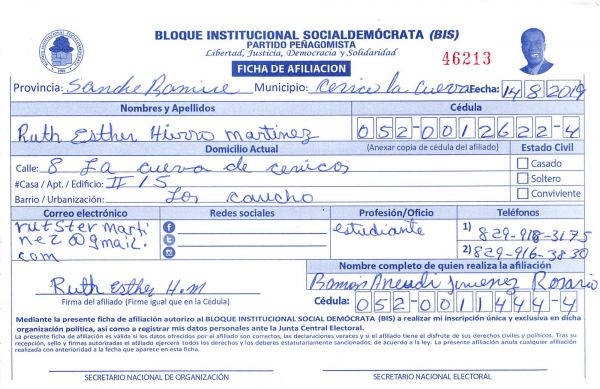 BLOQUE INSTITUCIONAL SOCIALDEMÓCRATA (BIS)
PARTIDO PEÑAGOMISTA
Libertad, Justicia, Democracia y Solidaridad
46213
FICHA DE AFILIACION
Provincia: Sanche Ramire Municipio: Cevico la Cueva Fecha: 14 8 2019
Nombres y Apellidos Cédula
Ruth Esther Hierro Martinez 052-0012622-4
Domicilio Actual (Anexar copia de cédula del afiliado) Estado Civil
Calle: 8 La cueva de cevicos Casado
#Casa / Apt. / Edificio: # 15 Soltero
Barrio / Urbanización: Los caucho Conviviente
Correo electrónico Redes sociales Profesión/Oficio Teléfonos
rutstermarti estudiante 1) 829-918-3175
nez@gmail. 2) 829-916-3830
com
Nombre completo de quien realiza la afiliación
Ruth Esther H.M Ramon Jimenez Rosario
Firma del afiliado (Firme igual que en la Cédula) Cédula: 052-0011444-4
Mediante la presente ficha de afiliación autorizo al BLOQUE INSTITUCIONAL SOCIAL DEMÓCRATA (BIS) a realizar mi inscripción única y exclusiva en dicha
organización política, así como a registrar mis datos personales ante la Junta Central Electoral.
La presente ficha de afiliación es válida si los datos ofrecidos por el afiliado son correctos, las declaraciones veraces y si el afiliado tiene el disfrute de sus derechos civiles y políticos. Tras su
recepción, sello y firmas autorizadas el afiliado ejercerá todos los derechos y los deberes estatutariamente sancionados, de acuerdo a la ley. La presente afiliación anula cualquier afiliación
realizada con anterioridad a la fecha que aparece en esta ficha.
SECRETARIO NACIONAL DE ORGANIZACIÓN SECRETARIO NACIONAL ELECTORAL